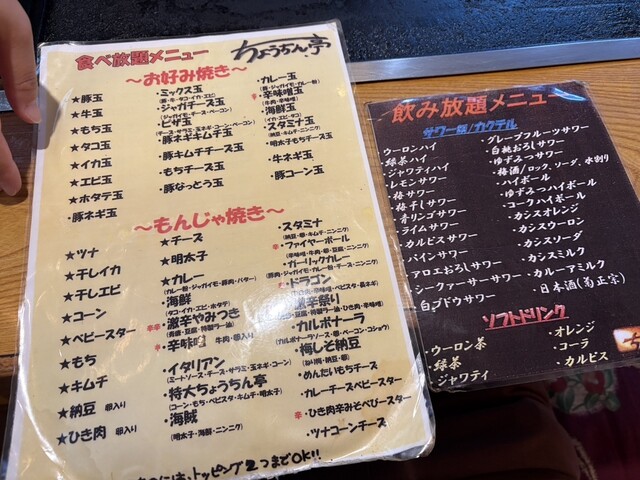 食べ放題メニュー
ちょうちん亭
～お好み焼き～
★豚玉
★牛玉
★もち玉
★タコ玉
★イカ玉
★エビ玉
★ホタテ玉
・豚ネギ玉
・ミックス玉
(豚・牛・イカ・エビ)
・ジャガチーズ玉
(ジャガイモ・チーズ・ベーコン)
・ピザ玉
・豚ネギキムチ玉
・豚キムチチーズ玉
・もちチーズ玉
・豚なっとう玉
・カレー玉
・辛味噌玉
(牛肉・辛味噌)
・海鮮玉
(イカ・エビ・タコ)
・スタミナ玉
(納豆・キムチ・ニンニク)
・明太子もちチーズ玉
・牛ネギ玉
・豚コーン玉
～もんじゃ焼き～
★ツナ
★干しイカ
★干しエビ
★コーン
★ベビースター
★もち
★キムチ
★納豆 卵入り
★ひき肉 卵入り
★チーズ
★明太子
★カレー
(カレー粉・ジャガイモ・豚肉・バター)
・海鮮
(タコ・イカ・エビ・ホタテ)
・激辛やみつき
・辛味噌
・イタリアン
(ミートソース・チーズ・サラミ・玉ネギ・コーン)
・特大ちょうちん亭
(コーン・もち・ベビスタ・キムチ・明太子)
・海賊
(明太子・海鮮・ニンニク)
・スタミナ
(納豆・卵・キムチ・ニンニク)
・ファイヤーボール
・ガーリックカレー
・ドラゴン
・激辛祭り
・カルボナーラ
(カルボナーラソース・卵・ベーコン・コショウ)
・梅しそ納豆
・めんたいもちチーズ
・カレーチーズベビースター
・ひき肉辛みそベビースター
・ツナコーンチーズ
トッピング2つまでOK!!
飲み放題メニュー
サワー類/カクテル
・ウーロンハイ
・緑茶ハイ
・ジャワティハイ
・レモンサワー
・梅サワー
・梅干しサワー
・青リンゴサワー
・ライムサワー
・カルピスサワー
・パインサワー
・アロエおろしサワー
・シークァーサーサワー
・白ブドウサワー
・グレープフルーツサワー
・白桃おろしサワー
・ゆずみつサワー
・梅酒/ロック、ソーダ、水割り
・ハイボール
・ゆずみつハイボール
・コークハイボール
・カシスオレンジ
・カシスウーロン
・カシスソーダ
・カシスミルク
・カルーアミルク
・日本酒(菊正宗)
ソフトドリンク
・ウーロン茶
・緑茶
・ジャワティ
・オレンジ
・コーラ
・カルピス